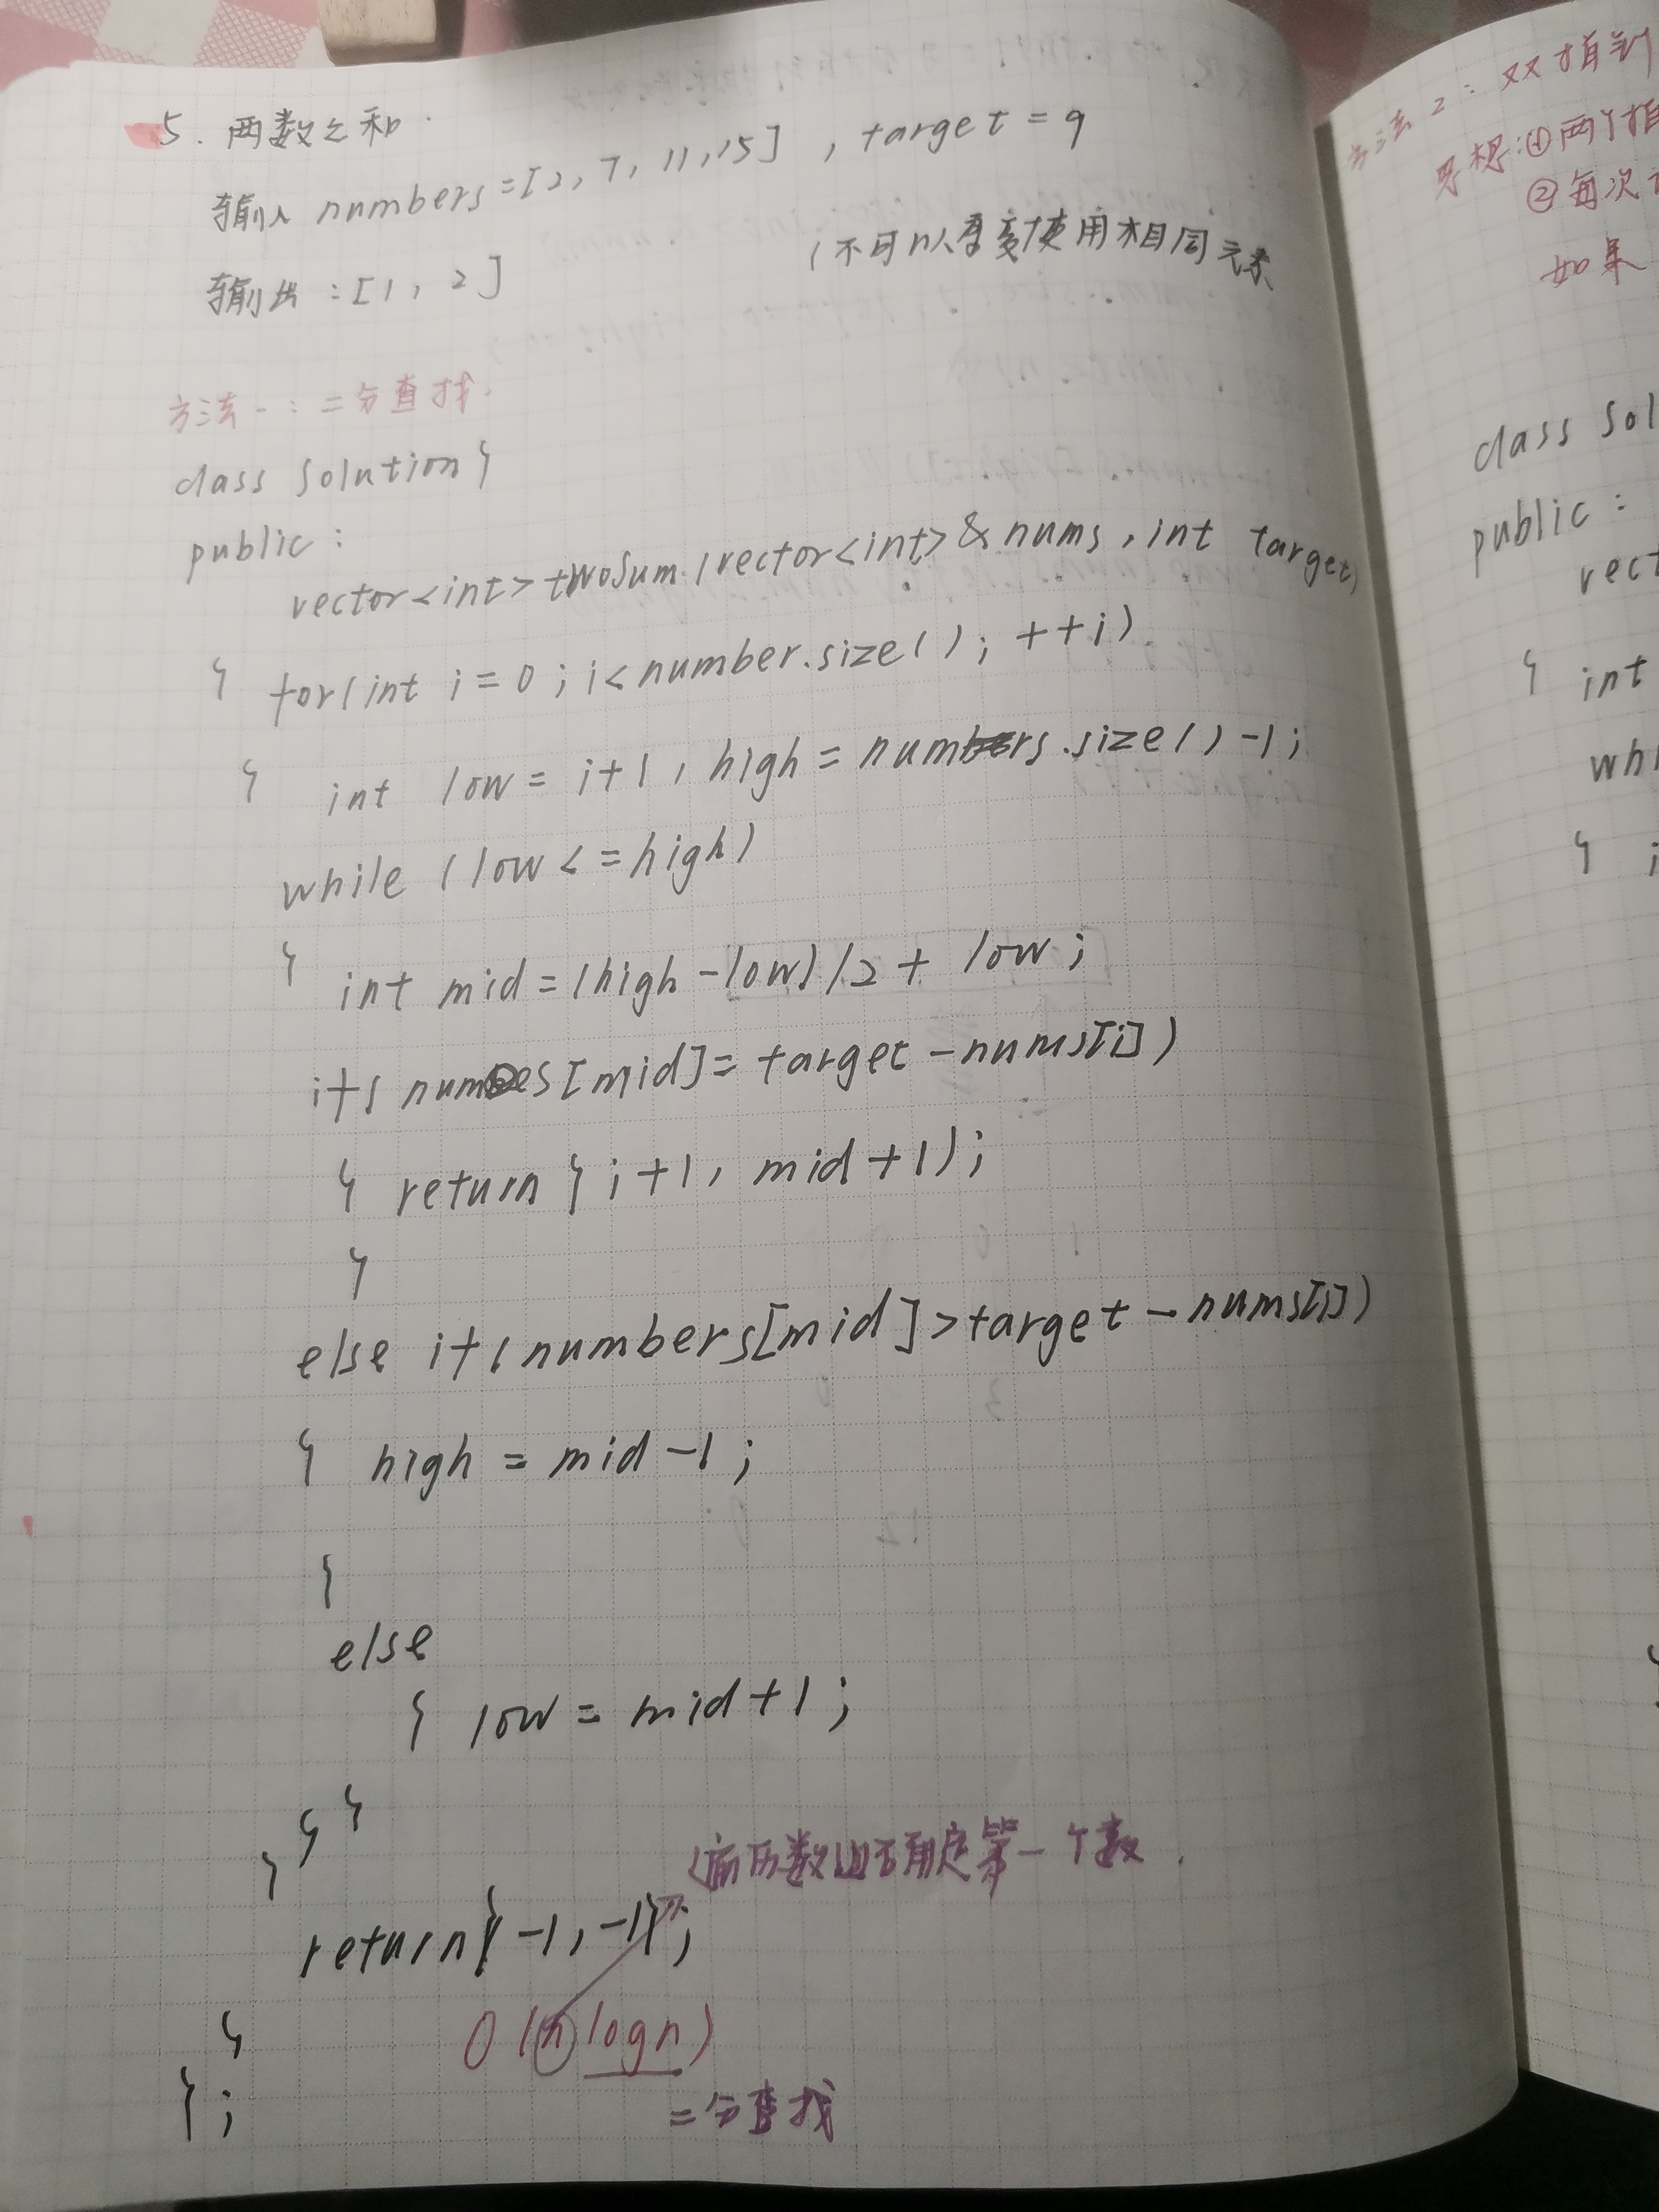 5. 两数之和.
输入 numbers=[2, 7, 11,15] , target = 9
输出 : [1, 2]
(不可以重复使用相同元素
方法一:二分查找.
class Solution{
public:
vector<int> twoSum (vector<int>& nums , int target)
{ for(int i = 0 ; i< number.size( ); ++i)
{ int low = i+1, high = numbers.size( ) -1;
while (low < = high)
{ int mid = (high -low) /2 + low ;
if( [mid] = target - nums[i])
{ return { i+1, mid+1);
}
else if( numbers[mid] > target - nums[i])
{ high = mid -1 ;
}
else
{ low = mid+1 ;
} }
}
(遍历数组确定第一个数.
return{ -1, -1} ;
O (n logn)
二分查找
}
} ;
方法2: 双指针
思想:①两个指
②每次
如果
class Sol
public :
vect
{ int
whi
{ i